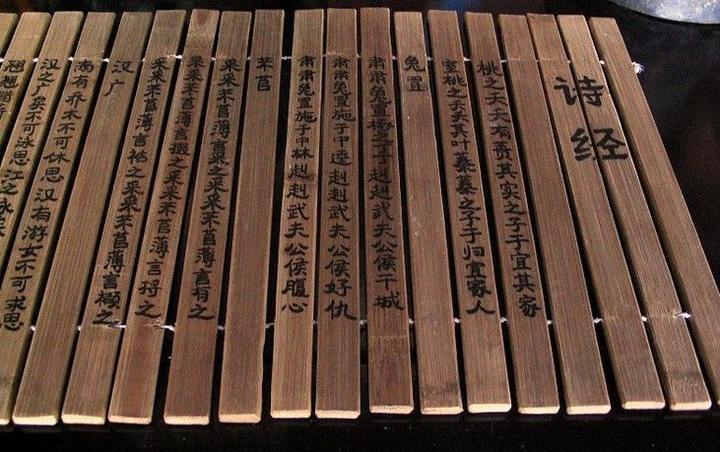 诗经
桃之夭夭有蕡其实之子于宜其家
室桃之夭夭其叶蓁蓁之子于归宜家人
兔置
肃肃兔置椓之子赳赳武夫公侯干城
肃肃兔置施于中逵赳赳武夫公侯好仇
肃肃兔置施于中林赳赳武夫公侯腹心
芣苢
采采芣苢薄言采之采采芣苢薄言有之
采采芣苢薄言掇之采采芣苢薄言捋之
采采芣苢薄言袺之采采芣苢薄言襭之
汉广
南有乔木不可休思汉有游女不可求思
汉之广矣不可泳思江之永
翘翘错